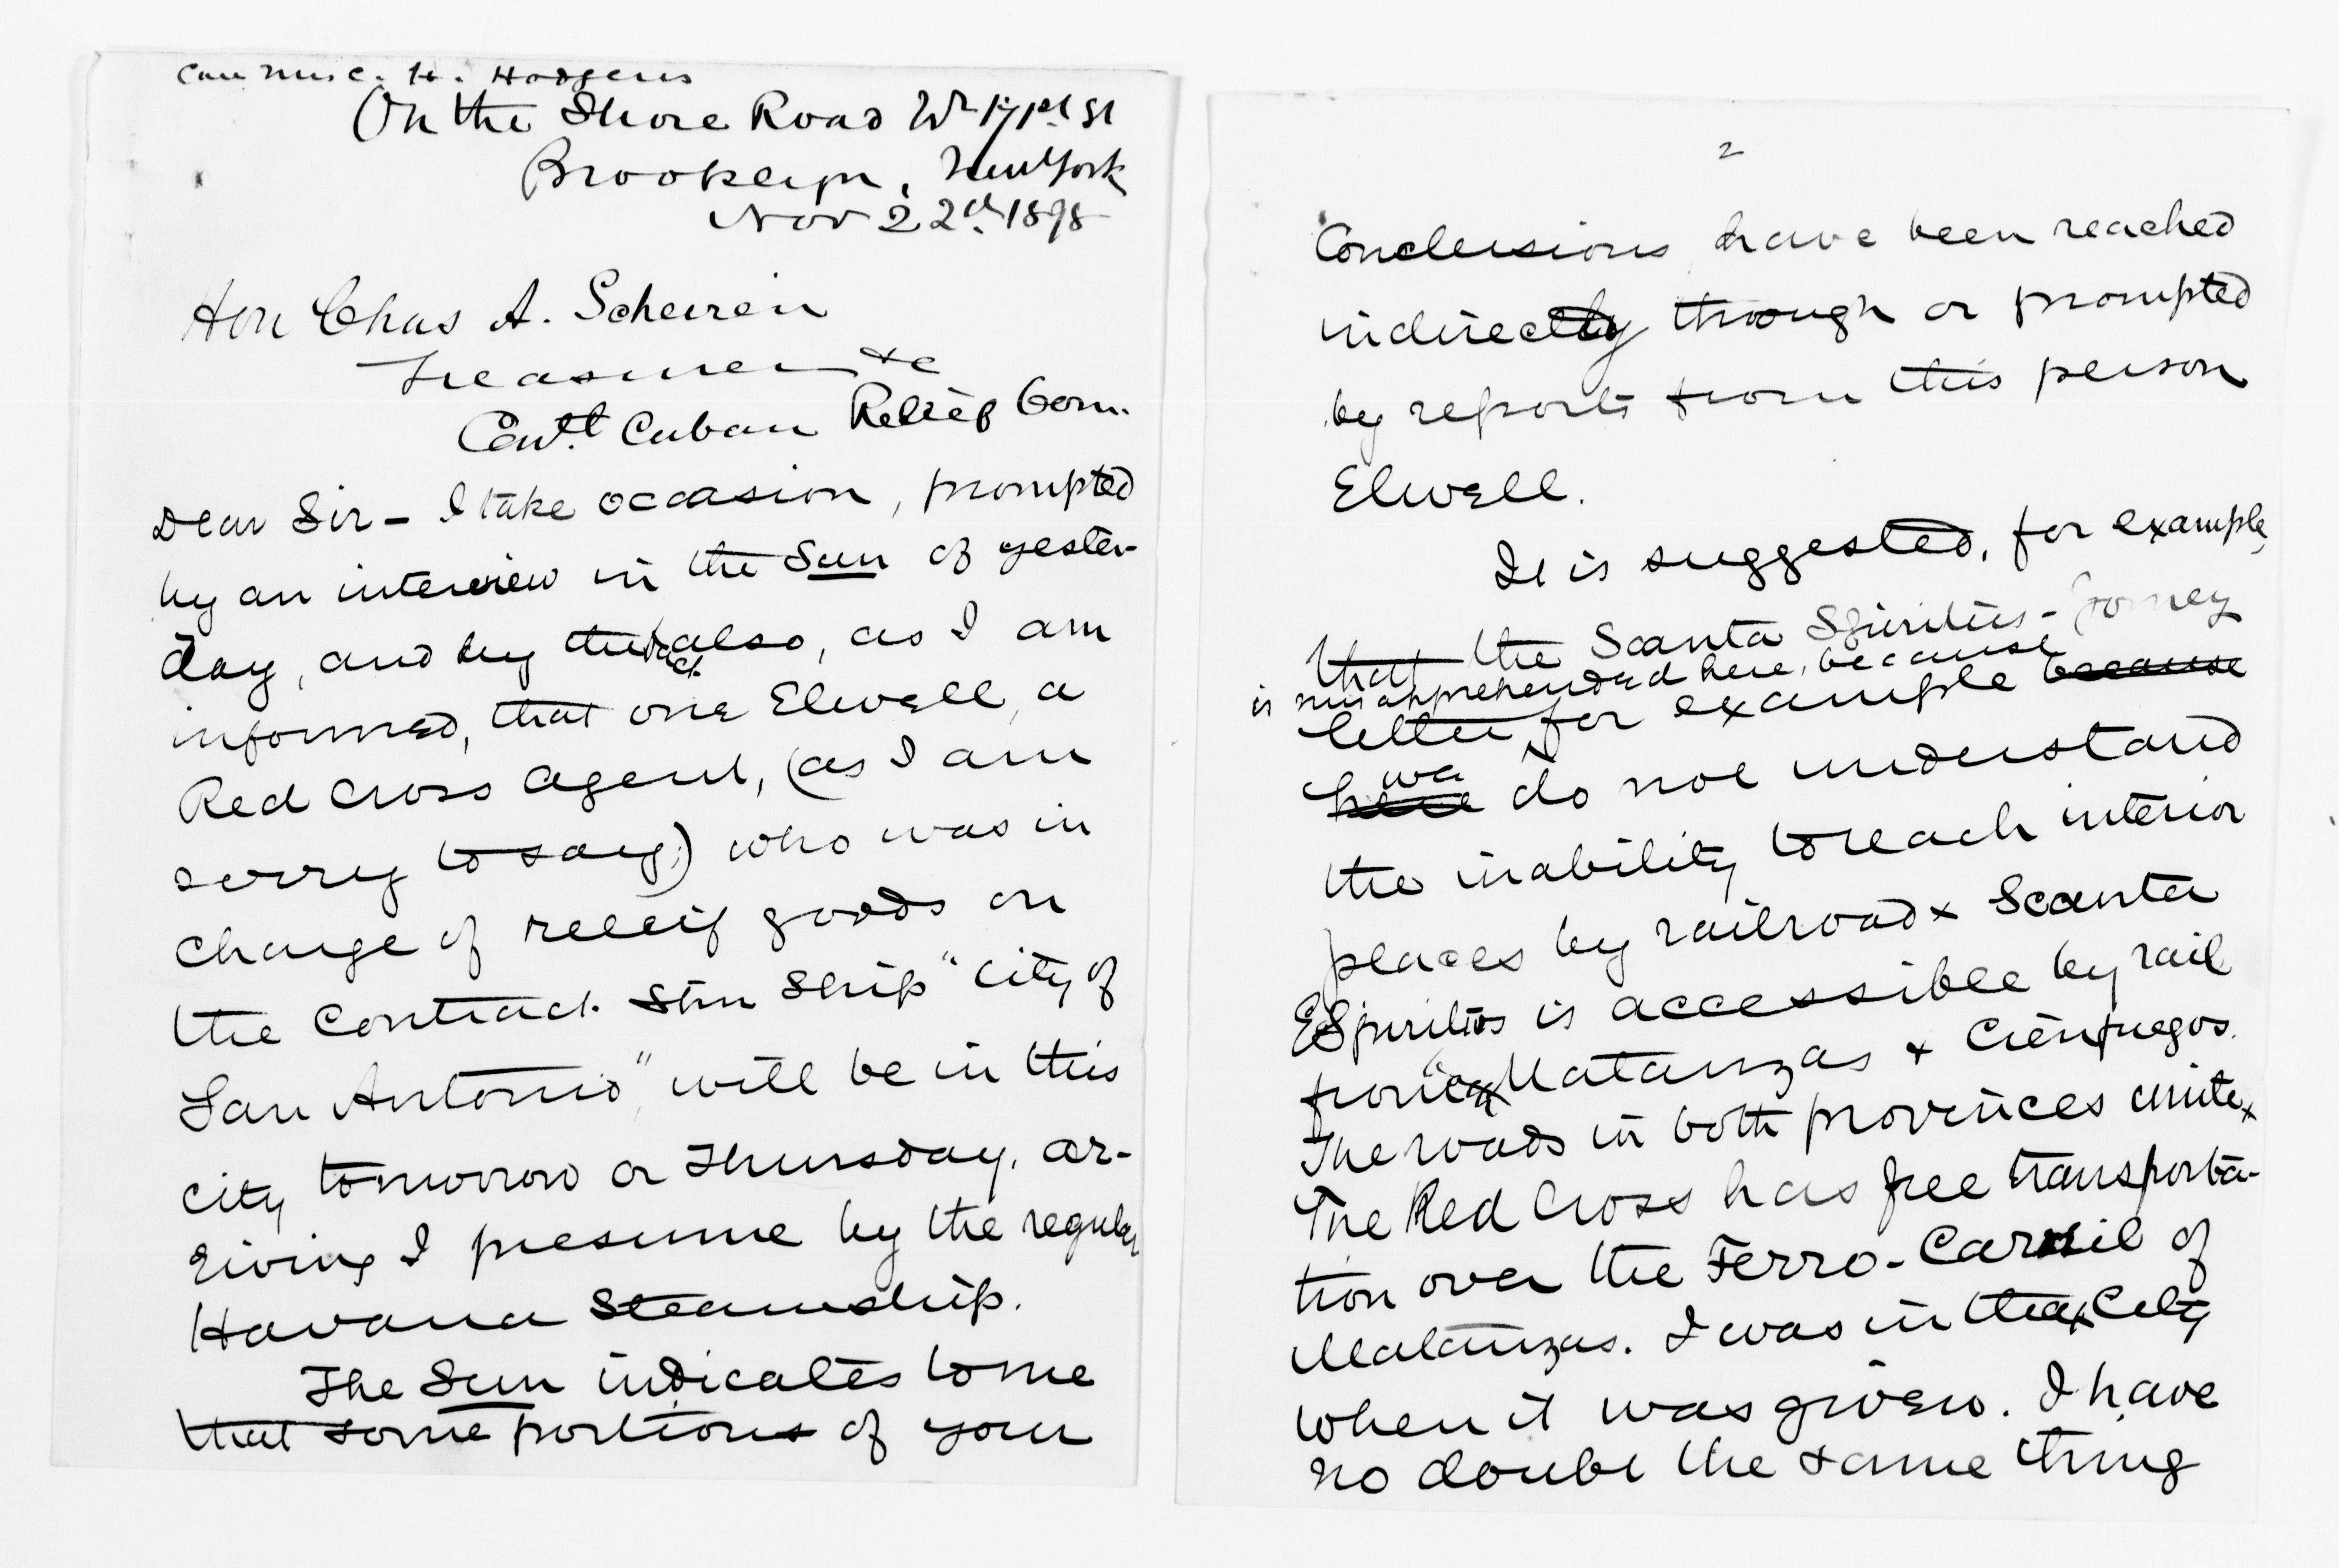 Care Mrs C. H. Hodgens
On the Shore Road W 171st St
Brooklyn, New York
Nov 22d. 1898
Hon Chas A. Scheiren
Treasurer &c
Cent. Cuban Relief Com.
Dear Sir - I take occasion, prompted
by an interview in the Sun of yester-
day, and by the fact also, as I am
informed, that one Elwell, a
Red Cross agent, (as I am
sorry to say,) who was in
charge of relief goods on
the Contract Stm Ship "City of
San Antonio," will be in this
city tomorrow or Thursday, ar-
riving I presume by the regular
Havana Steamship.
The Sun indicates to me
that some portions of your
2
Conclusions have been reached
indirectly through or prompted
by reports from this person
Elwell.
It is suggested, for example,
that the Santa Spiritus-
is misapprehended here, because
letter, for example because
here we do not understand
the inability to reach interior
places by railroad x Santa
Espiritus is accessible by rail
from Matanzas & Cienfuegos.
The roads in both provinces unite x
The Red Cross has free transporta-
tion over the Ferro-Carril of
Matanzas. I was in that City
when it was given. I have
no doubt the same thing